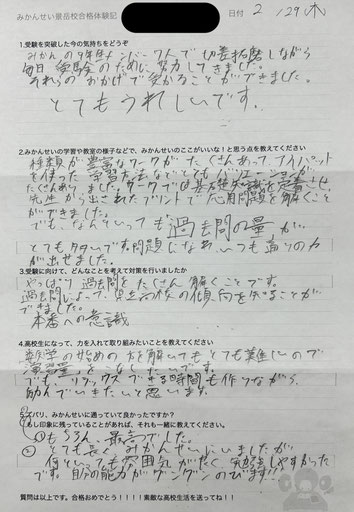 みかんせい景岳校合格体験記
日付 2 /29(木)
1.受験を突破した今の気持ちをどうぞ
みかんの9年生メンバー 人で切磋琢磨しながら
毎日受験のために努力してきました。
それらのおかげで受かることができました。
とてもうれしいです。
2.みかんせいの学習や教室の様子などで、みかんせいのここがいいな！と思う点を教えてください
種類が豊富なワークがたくさんあって、アイパッド
を使った学習方法などとてもバリエーションが
たくさんありました。ワークで基礎知識を定着させ、
先生から出されたプリントで応用問題を解くこと
ができました。
でも、なんといっても過去問の量が
とても多いです。問題になれ、いつも通りの力
が出せました。
3.受験に向けて、どんなことを考えて対策を行いましたか
やっぱり過去問をたくさん解くことです。
過去問によって の傾向を知ることが
できました。
本番への意識
4.高校生になって、力を入れて取り組みたいことを教えてください
数学の始めの方を解いてもとても難しいので
「演習量」をこなしたいです。
でも、リラックスできる時間も作りながら、
励んでいきたいと思います。
5.ズバリ、みかんせいに通っていて良かったですか？
もし印象に残っていることがあれば、それも一緒に教えてください。
①もちろん、最高でした。
② とても長くみかんせいにいましたが
何といっても雰囲気がよく、勉強しやすかった
です。自分の能力がグングンのびます!!
質問は以上です。合格おめでとう！！！！素敵な高校生活を送ってね！！